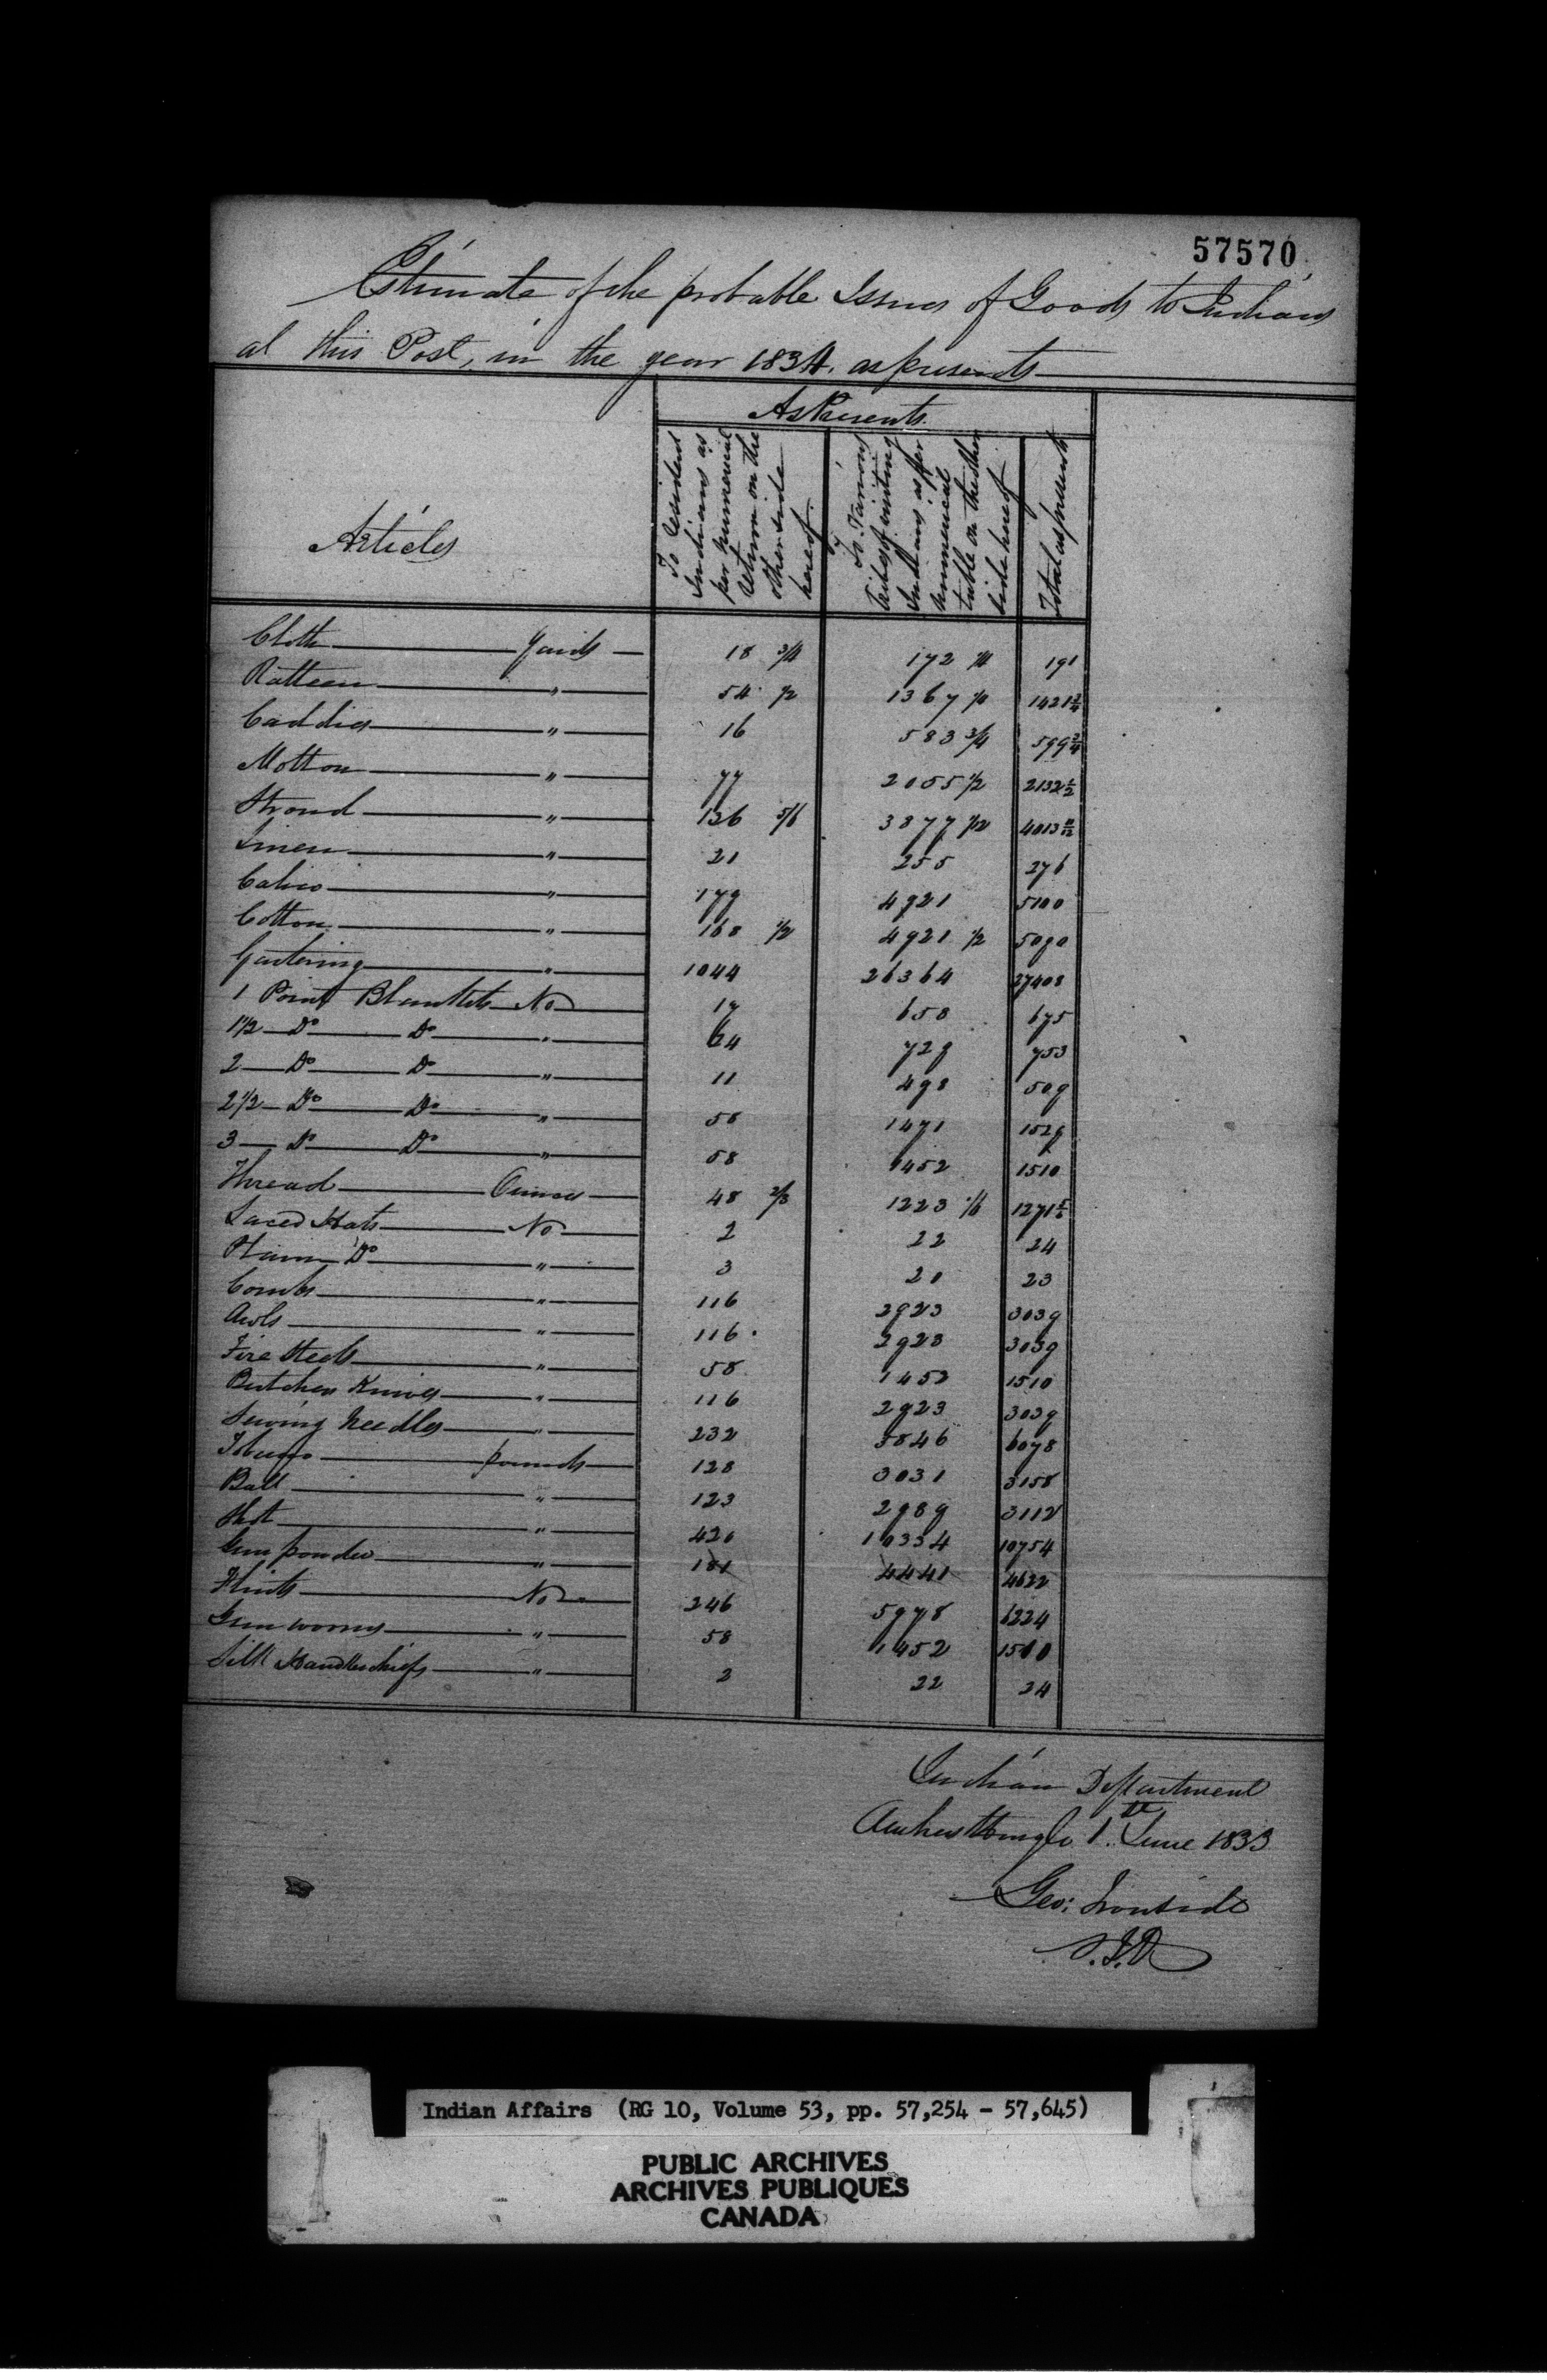 57570
Estimate of the probable Issues of Goods to Indians
at this Post, in the year 1834. as presents
Articles
As Presents.
To Resident Indians as per numerical return on the other side hereof.
To Various Tribes of visiting Indians as per numerical table on the other side hereof
Total as presents
Cloth Yards 18 3/4 172 1/4 191
Ratteen " 54 1/2 1367 1/4 1421 3/4
Caddies " 16 583 3/4 599 3/4
Molton " 77 2055 1/2 2132 1/2
Stroud " 136 5/6 3877 1/12 4013 11/12
Linen " 21 255 276
Calico " 179 4921 5100
Cotton " 168 1/2 4921 1/2 5090
Gartering " 1044 26364 27408
1 Point Blankets No 17 658 675
1 1/2 Do Do " 24 729 753
2 Do Do " 11 498 509
2 1/2 Do Do " 58 1471 1529
3 Do Do " 58 1452 1510
Thread Ounces 48 2/3 1223 1/6 1271 5/6
Laced Hats No 2 22 24
Plain Do " 3 20 23
Combs " 116 2923 3039
Awls " 116 2923 3039
Fire Steels " 58 1452 1510
Butcher Knives " 116 2923 3039
Sewing Needles " 232 5846 6078
Tobacco pounds 128 3031 3158
Ball " 123 2989 3112
Shot " 420 10334 10754
Gun powder " 181 4441 4622
Flints No 246 5978 6224
Gun worms " 58 1452 1510
Silk Handkerchiefs " 2 22 24
Indian Department
Amherstburgh 1st June 1833
Geo: Ironside
S.I.A
Indian Affairs (RG 10, Volume 53, pp. 57,254 - 57,645)
PUBLIC ARCHIVES
ARCHIVES PUBLIQUES
CANADA